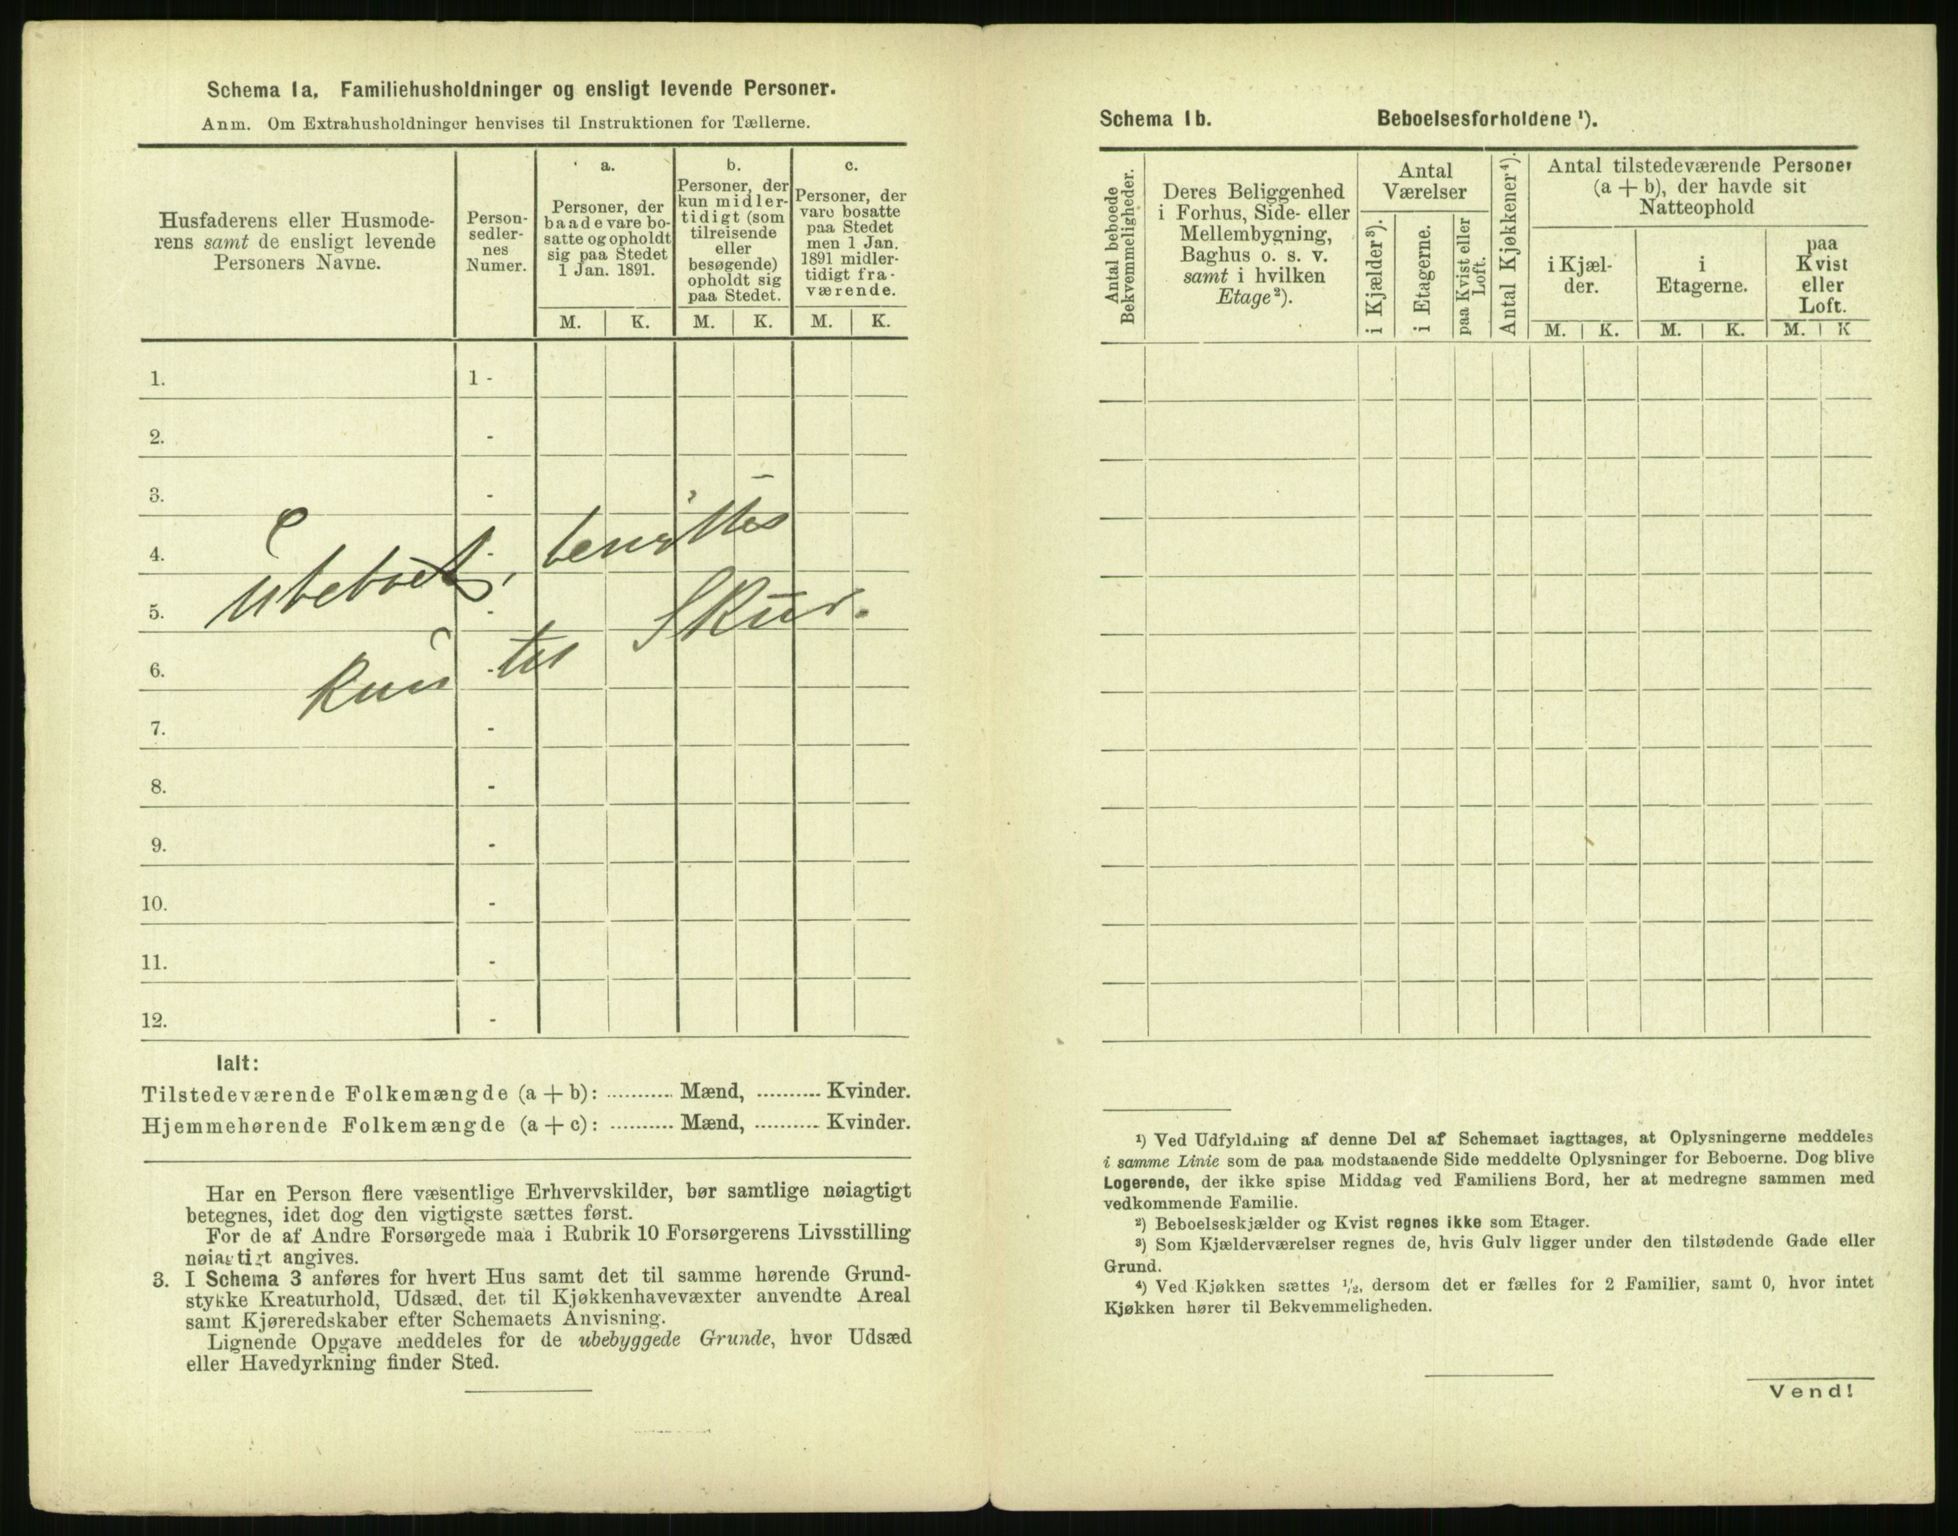 Schema 1a. Familiehusholdninger og ensligt levende Personer.
Anm. Om Extrahusholdninger henvises til Instruktionen for Tællerne.
Husfaderens eller Husmode-
rens samt de ensligt levende
Personers Navne.
Person-
sedler-
nes
Numer.
a.
Personer, der
baade vare bo-
satte og opholdt
sig paa Stedet
1 Jan. 1891.
b.
Personer, der
kun midler-
tidigt (som
tilreisende
eller
besøgende)
opholdt sig
paa Stedet.
c.
Personer, der
vare bosatte
paa Stedet
men 1 Jan.
1891 midler-
tidigt fra-
værende.
M. K. M. K. M. K.
1. 1 -
2. -
3. -
4. -
5. -
6. -
7. -
8. -
9. -
10. -
11. -
12. -
Ubeboet, benyttes
kun til Skur.
Ialt:
Tilstedeværende Folkemængde (a + b): ........... Mænd, ........... Kvinder.
Hjemmehørende Folkemængde (a + c): ........... Mænd, ........... Kvinder.
Har en Person flere væsentlige Erhvervskilder, bør samtlige nøiagtigt
betegnes, idet dog den vigtigste sættes først.
For de af Andre Forsørgede maa i Rubrik 10 Forsørgerens Livsstilling
nøiagtigt angives.
3. I Schema 3 anføres for hvert Hus samt det til samme hørende Grund-
stykke Kreaturhold, Udsæd, det til Kjøkkenhavevæxter anvendte Areal
samt Kjøreredskaber efter Schemaets Anvisning.
Lignende Opgave meddeles for de ubebyggede Grunde, hvor Udsæd
eller Havedyrkning finder Sted.
Schema 1b. Beboelsesforholdene ¹).
Antal beboede
Bekvemmeligheder.
Deres Beliggenhed
i Forhus, Side- eller
Mellembygning,
Baghus o. s. v.
samt i hvilken
Etage²).
Antal
Værelser
i Kjælder³).
i Etagerne.
paa Kvist eller
Loft.
Antal Kjøkkener⁴).
Antal tilstedeværende Personer
(a + b), der havde sit
Natteophold
i Kjæl-
der.
i
Etagerne.
paa
Kvist
eller
Loft.
M. K. M. K. M. K
¹) Ved Udfyldning af denne Del af Schemaet iagttages, at Oplysningerne meddeles
i samme Linie som de paa modstaaende Side meddelte Oplysninger for Beboerne. Dog blive
Logerende, der ikke spise Middag ved Familiens Bord, her at medregne sammen med
vedkommende Familie.
²) Beboelseskjælder og Kvist regnes ikke som Etager.
³) Som Kjælderværelser regnes de, hvis Gulv ligger under den tilstødende Gade eller
Grund.
⁴) Ved Kjøkken sættes ½, dersom det er fælles for 2 Familier, samt 0, hvor intet
Kjøkken hører til Bekvemmeligheden.
Vend!